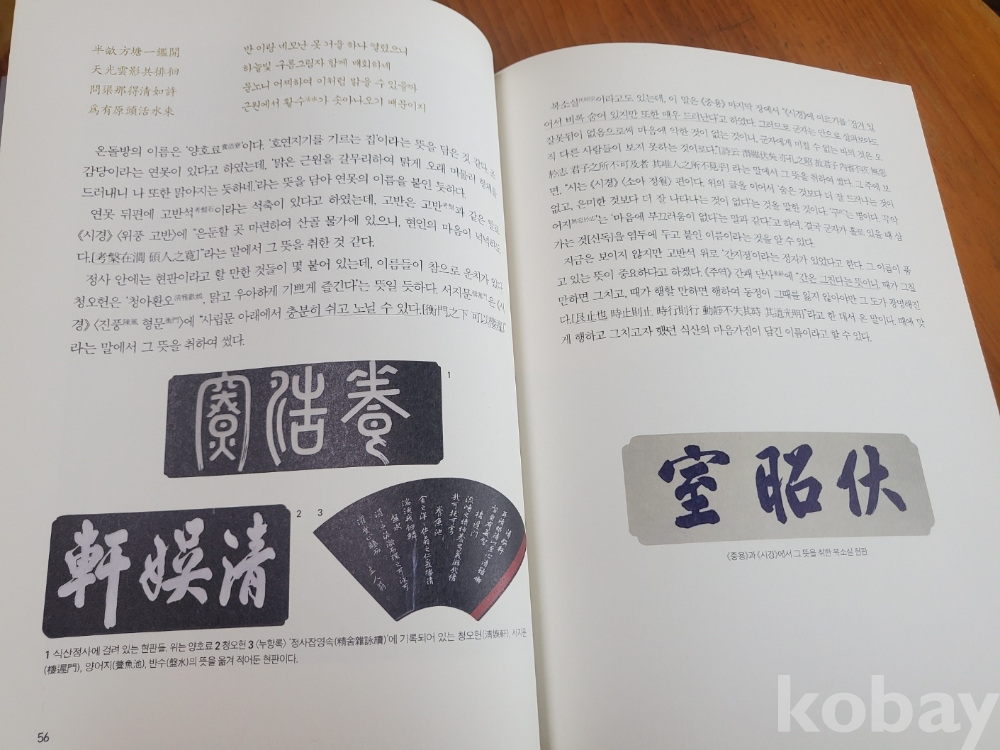 半畝方塘一鑑開
天光雲影共徘徊
問渠那得清如許
爲有原頭活水來
반 이랑 네모난 못 거울 하나 열렸으니
하늘빛 구름그림자 함께 배회하네
묻노니 어찌하여 이처럼 맑을 수 있을까
근원에서 활수가 솟아나오기 때문이지
온돌방의 이름은 '양호료'이다. '호연지기를 기르는 집'이라는 뜻을 담은 것 같다. 또
감당이라는 연못이 있다고 하였는데, '맑은 근원을 갈무리하여 맑게 오래 머물러
드러내니 나 또한 맑아지는 듯하네'라는 뜻을 담아 연못의 이름을 붙인 듯하다.
연못 뒤편에 고반석이라는 석축이 있다고 하였는데, 고반은 고반과 같은 말로,
《시경》〈위풍 고반〉에 "은둔할 곳 마련하여 산골 물가에 있으니, 현인의 마음이 넉넉하
다.[考槃在澗 碩人之寬]"라는 말에서 그 뜻을 취한 것 같다.
정사 안에는 현판이라고 할 만한 것들이 몇 붙어 있는데, 이름들이 참으로 운치가 있다.
청오헌은 '청아환오, 맑고 우아하게 기쁘게 즐긴다'는 뜻일 듯하다. 서지문은 《시
경》〈진풍 형문〉에 "사립문 아래에서 충분히 쉬고 노닐 수 있다.[衡門之下 可以棲遲]"
라는 말에서 그 뜻을 취하여 썼다.
寮浩養
1
軒娛清
2 3
1 식산정사에 걸려 있는 현판들. 위는 양호료 2 청오헌 3 〈누항록〉 '정사잡영속(精舍雜詠續)'에 기록되어 있는 청오헌(淸娛軒), 서지문
(棲遲門), 양어지(養魚池), 반수(盤水)의 뜻을 옮겨 적어둔 현판이다.
56
복소실이라고도 있는데, 이 말은 《중용》 마지막 장에서 "《시경》에 이르기를 '잠겨 있
어서 비록 숨어 있지만 또한 매우 드러난다'라고 하였다. 그러므로 군자는 안으로 살펴보아도
잘못됨이 없음으로써 마음에 악한 것이 없는 것이니, 군자에게 미칠 수 없는 바의 것은 오
직 다른 사람들이 보지 못하는 것이로다."[詩云 潛雖伏矣 亦孔之昭 故君子內省不疚 無惡
於志 君子之所不可及者 其唯人之所不見乎]라는 말에서 그 뜻을 취하여 썼다. 그 주에 보
면, "시는 《시경》〈소아 정월〉 편이다. 위의 글을 이어서 '숨은 것보다 더 잘 드러나는 것이
없고, 은미한 것보다 더 잘 나타나는 것이 없다'는 것을 말한 것이다.
는 '마음에 부끄러움이 없다'는 말과 같다"고 하여, 결국 군자가 홀로 있을 때 삼
가는 것[신독]을 염두에 두고 붙인 이름이라는 것을 알 수 있다.
지금은 보이지 않지만 고반석 위로 '간지정'이라는 정자가 있었다고 한다. 그 이름이 품
고 있는 뜻이 중요하다고 하겠다. 《주역》 간괘 단사에 "간은 그친다는 뜻이니, 때가 그칠
만하면 그치고, 때가 행할 만하면 행하여 동정이 그때를 잃지 않아야만 그 도가 광명하다
다.[艮止也 時止則止 時行則行 動靜不失其時 其道光明]"라고 한 데서 온 말이니, 때에 맞
게 행하고 그치고자 했던 식산의 마음가짐이 담긴 이름이라고 할 수 있다.
室昭伏
《중용》과 《시경》에서 그 뜻을 취한 복소실 현판
kobay